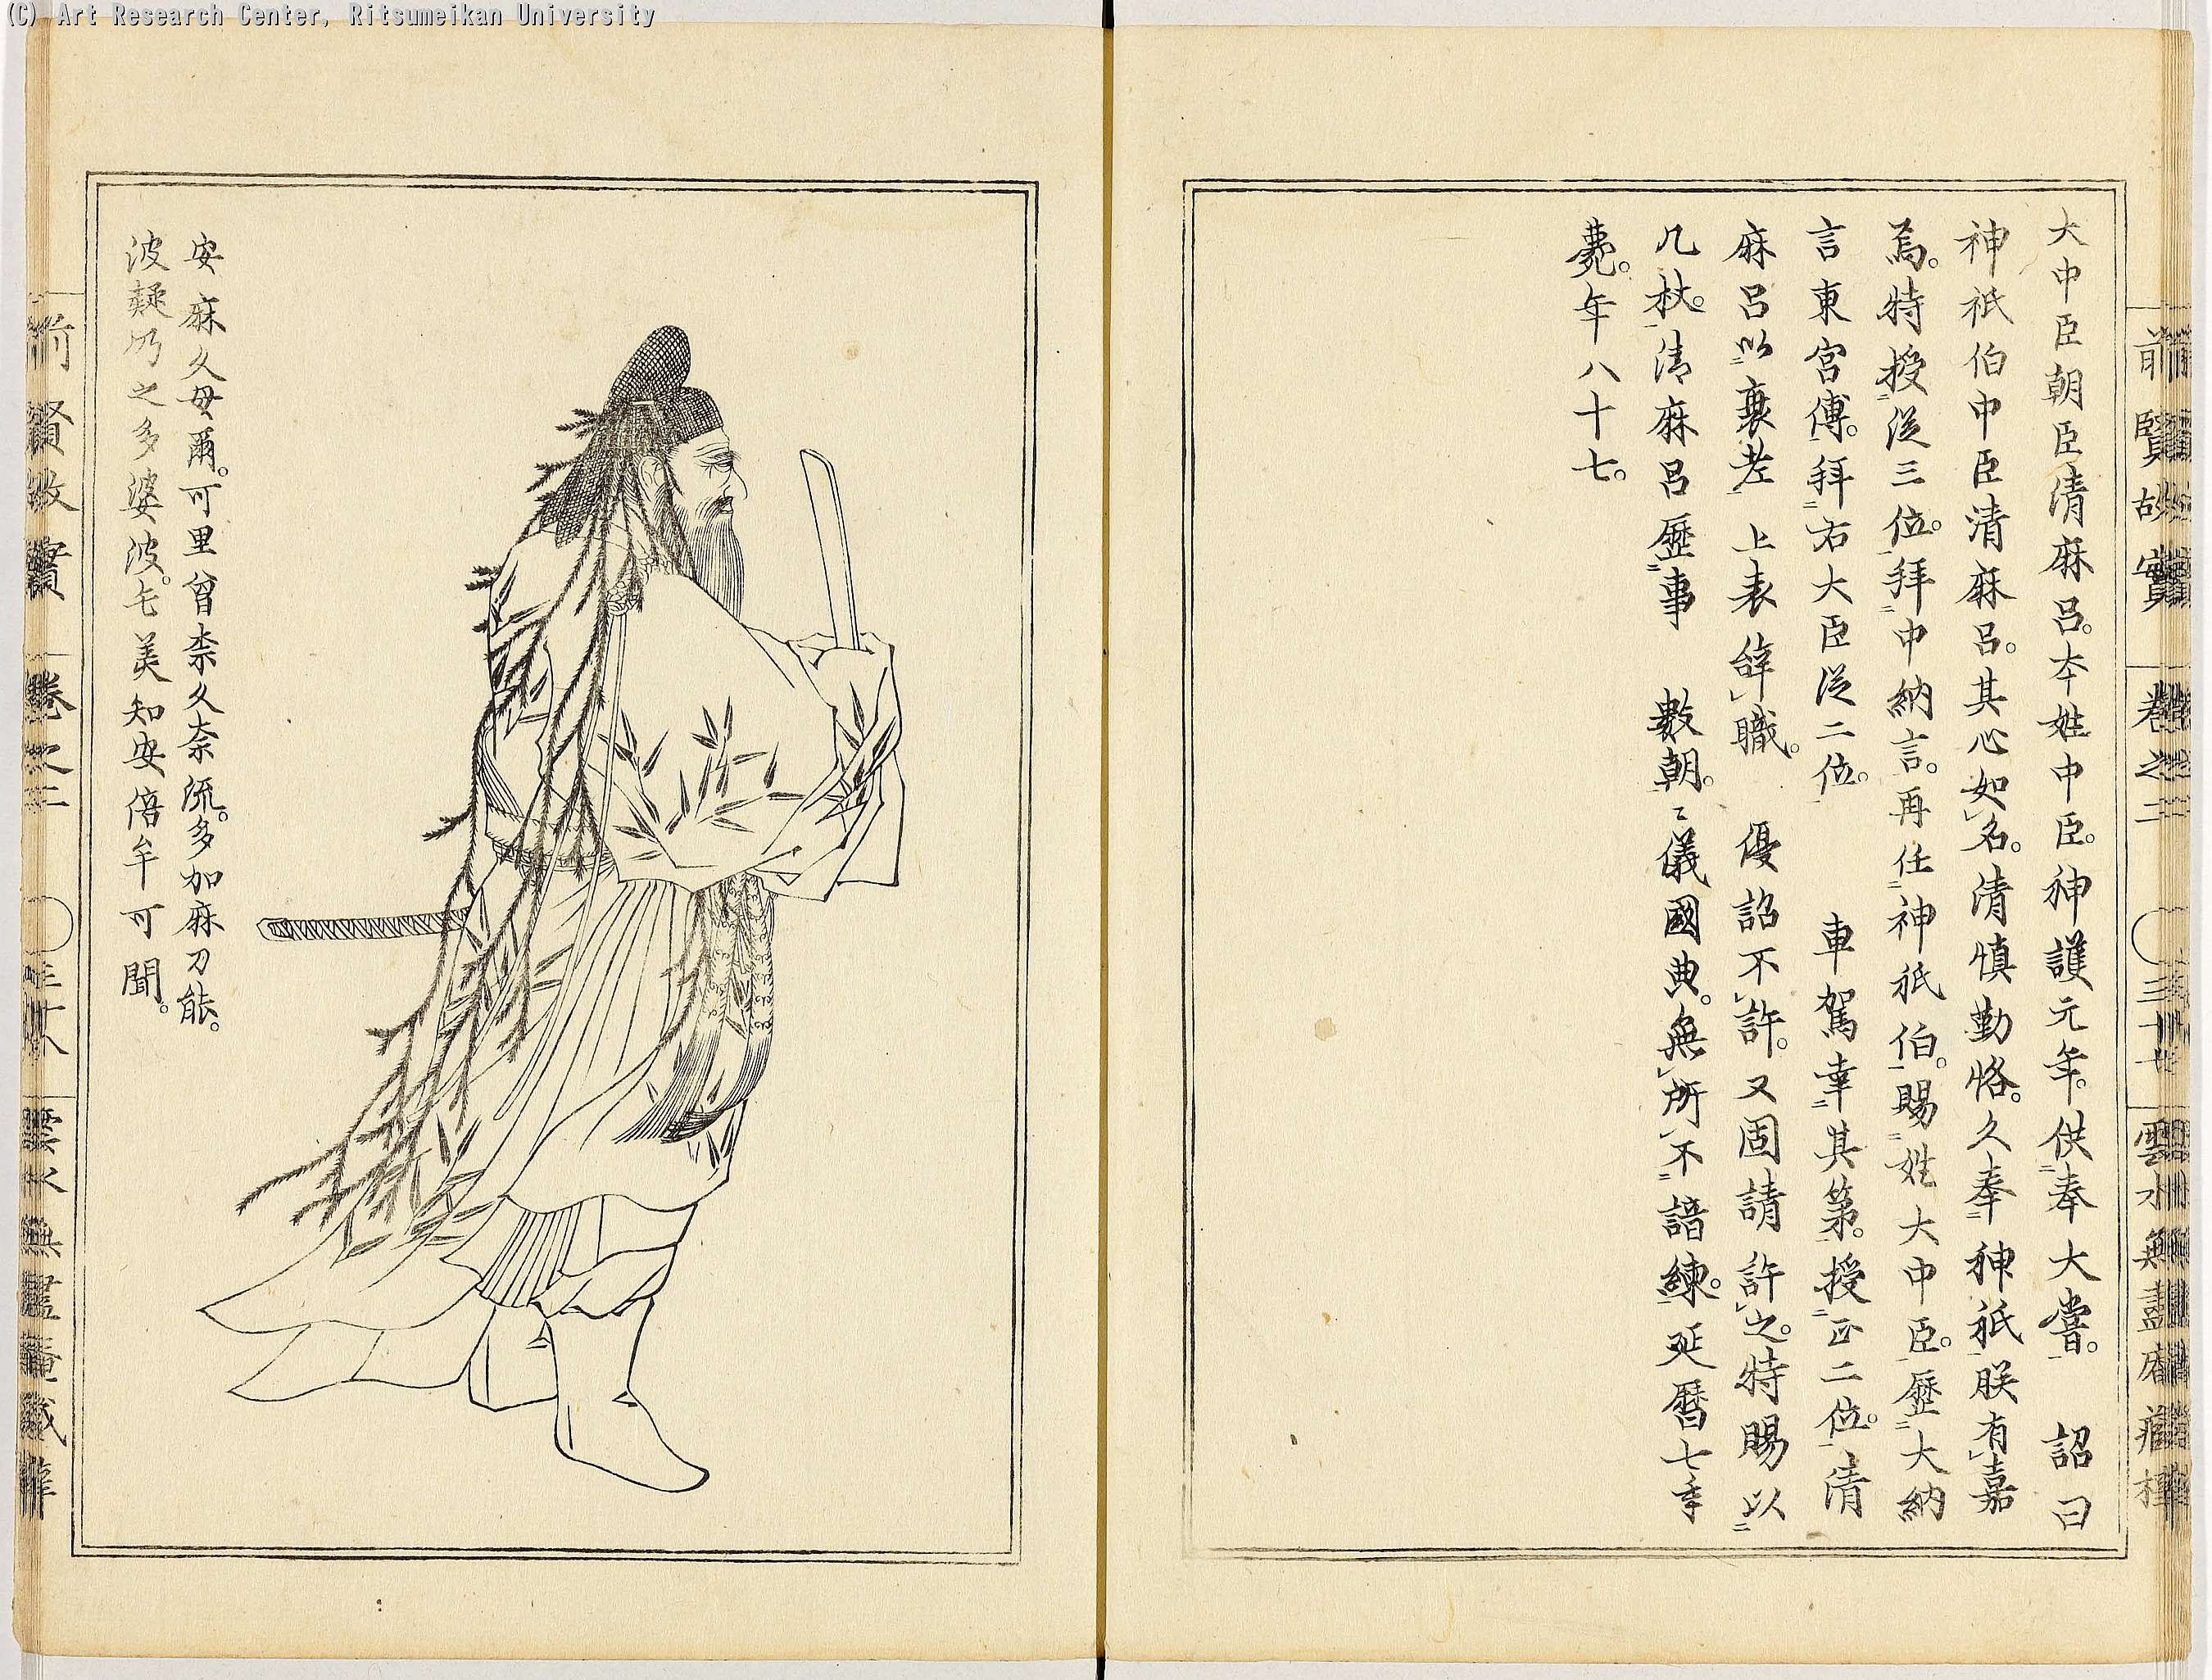 (C) Art Research Center, Ritsumeikan University
前賢故實 卷之二 ○三十七 雲水無盡庵藏梓
大中臣朝臣清麻呂。本姓中臣。神護元年。供奉大嘗。 詔曰
神祇伯中臣清麻呂。其心如名。清慎勤恪。久奉神祇朕有嘉
焉。特授従三位。拜中納言。再任神祇伯。賜姓大中臣。歷大納
言東宮傅。拜右大臣従二位。 車駕幸其第。授正二位。清
麻呂以衰老 上表辭職。 優詔不許。又固請許之。特賜以
几杖。清麻呂歷事 數朝。〻儀國典。無所不諳練。延曆七年
薨。年八十七。
安麻久母爾。可里曾奈久奈流。多加麻刀能。
波疑乃之多婆波。毛美知安倍牟可聞。
前賢故實 卷之二